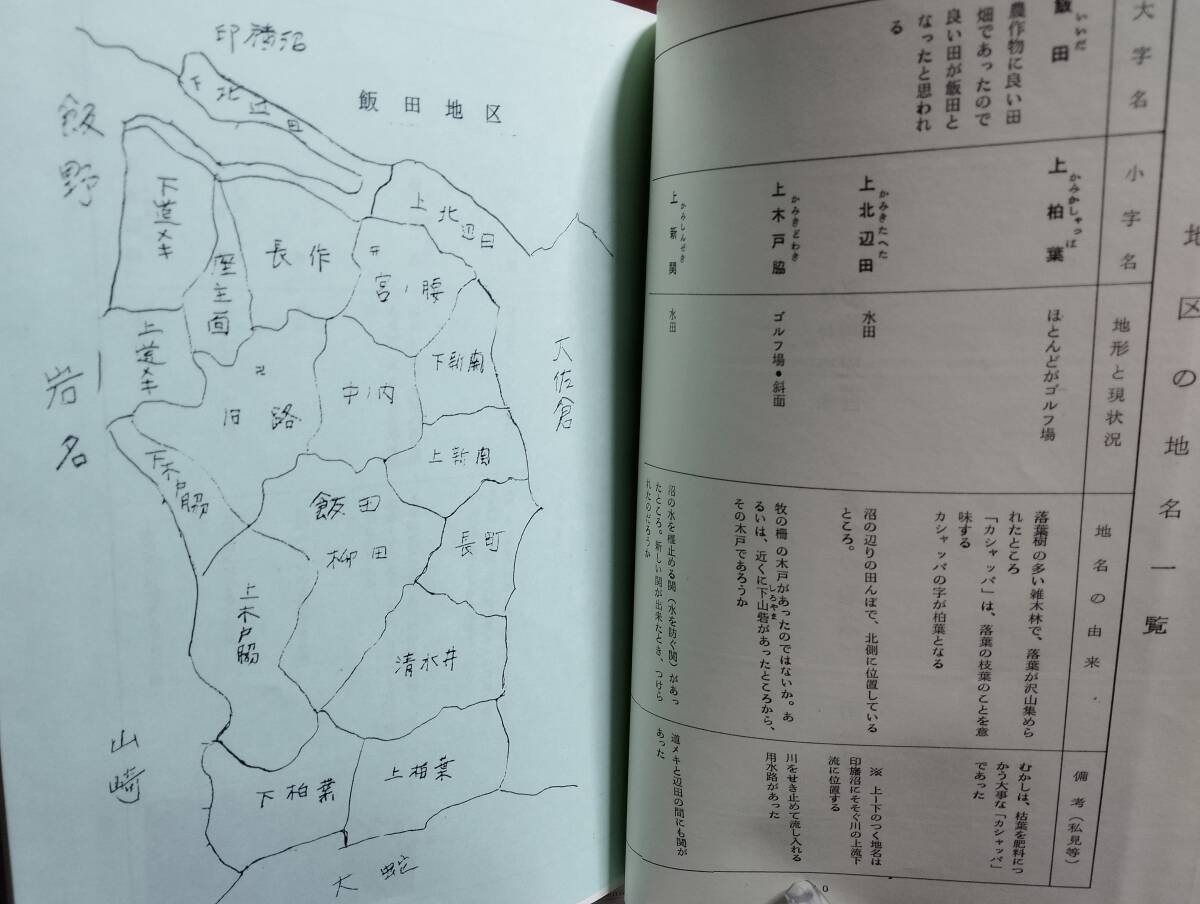 印旛沼
飯田地区
下北辺田
飯野
上北辺田
下道メキ
長作
座主面
宮ノ腰
上道メキ
下新関
大佐倉
中ノ内
卍
旧路
岩名
上新関
下木戸脇
飯田
柳田
長町
上木戸脇
清水井
山崎
下柏葉
上柏葉
大蛇
地区の地名一覧
大字名
小字名
地形と現状況
地名の由来
備考(私見等)
飯田
いいだ
農作物に良い田
畑であったので
良い田が飯田と
なったと思われ
る
上柏葉
かみかしゃっぱ
ほとんどがゴルフ場
落葉樹の多い雑木林で、落葉が沢山集めら
れたところ
「カシャッパ」は、落葉の枝葉のことを意
味する
カシャッパの字が柏葉となる
むかしは、枯葉を肥料につ
かう大事な「カシャッパ」
であった
上北辺田
かみきたへた
水田
沼の辺りの田んぼで、北側に位置している
ところ。
※ 上ー下のつく地名は
印旛沼にそそぐ川の上流下
流に位置する
上木戸脇
かみきどわき
ゴルフ場・斜面
牧の柵の木戸があったのではないか。あ
るいは、近くに下山砦があったところから、
しろやま
その木戸であろうか
川をせき止めて流し入れる
用水路があった
上新関
かみしんぜき
水田
沼の水を堰止める関(水を防ぐ関)があっ
たところ。新しい関が出来たとき、つけら
れたのだろうか
道メキと辺田の間にも関が
あった